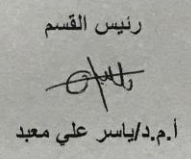 رئيس القسم
أ.م.د/ياسر علي معبد